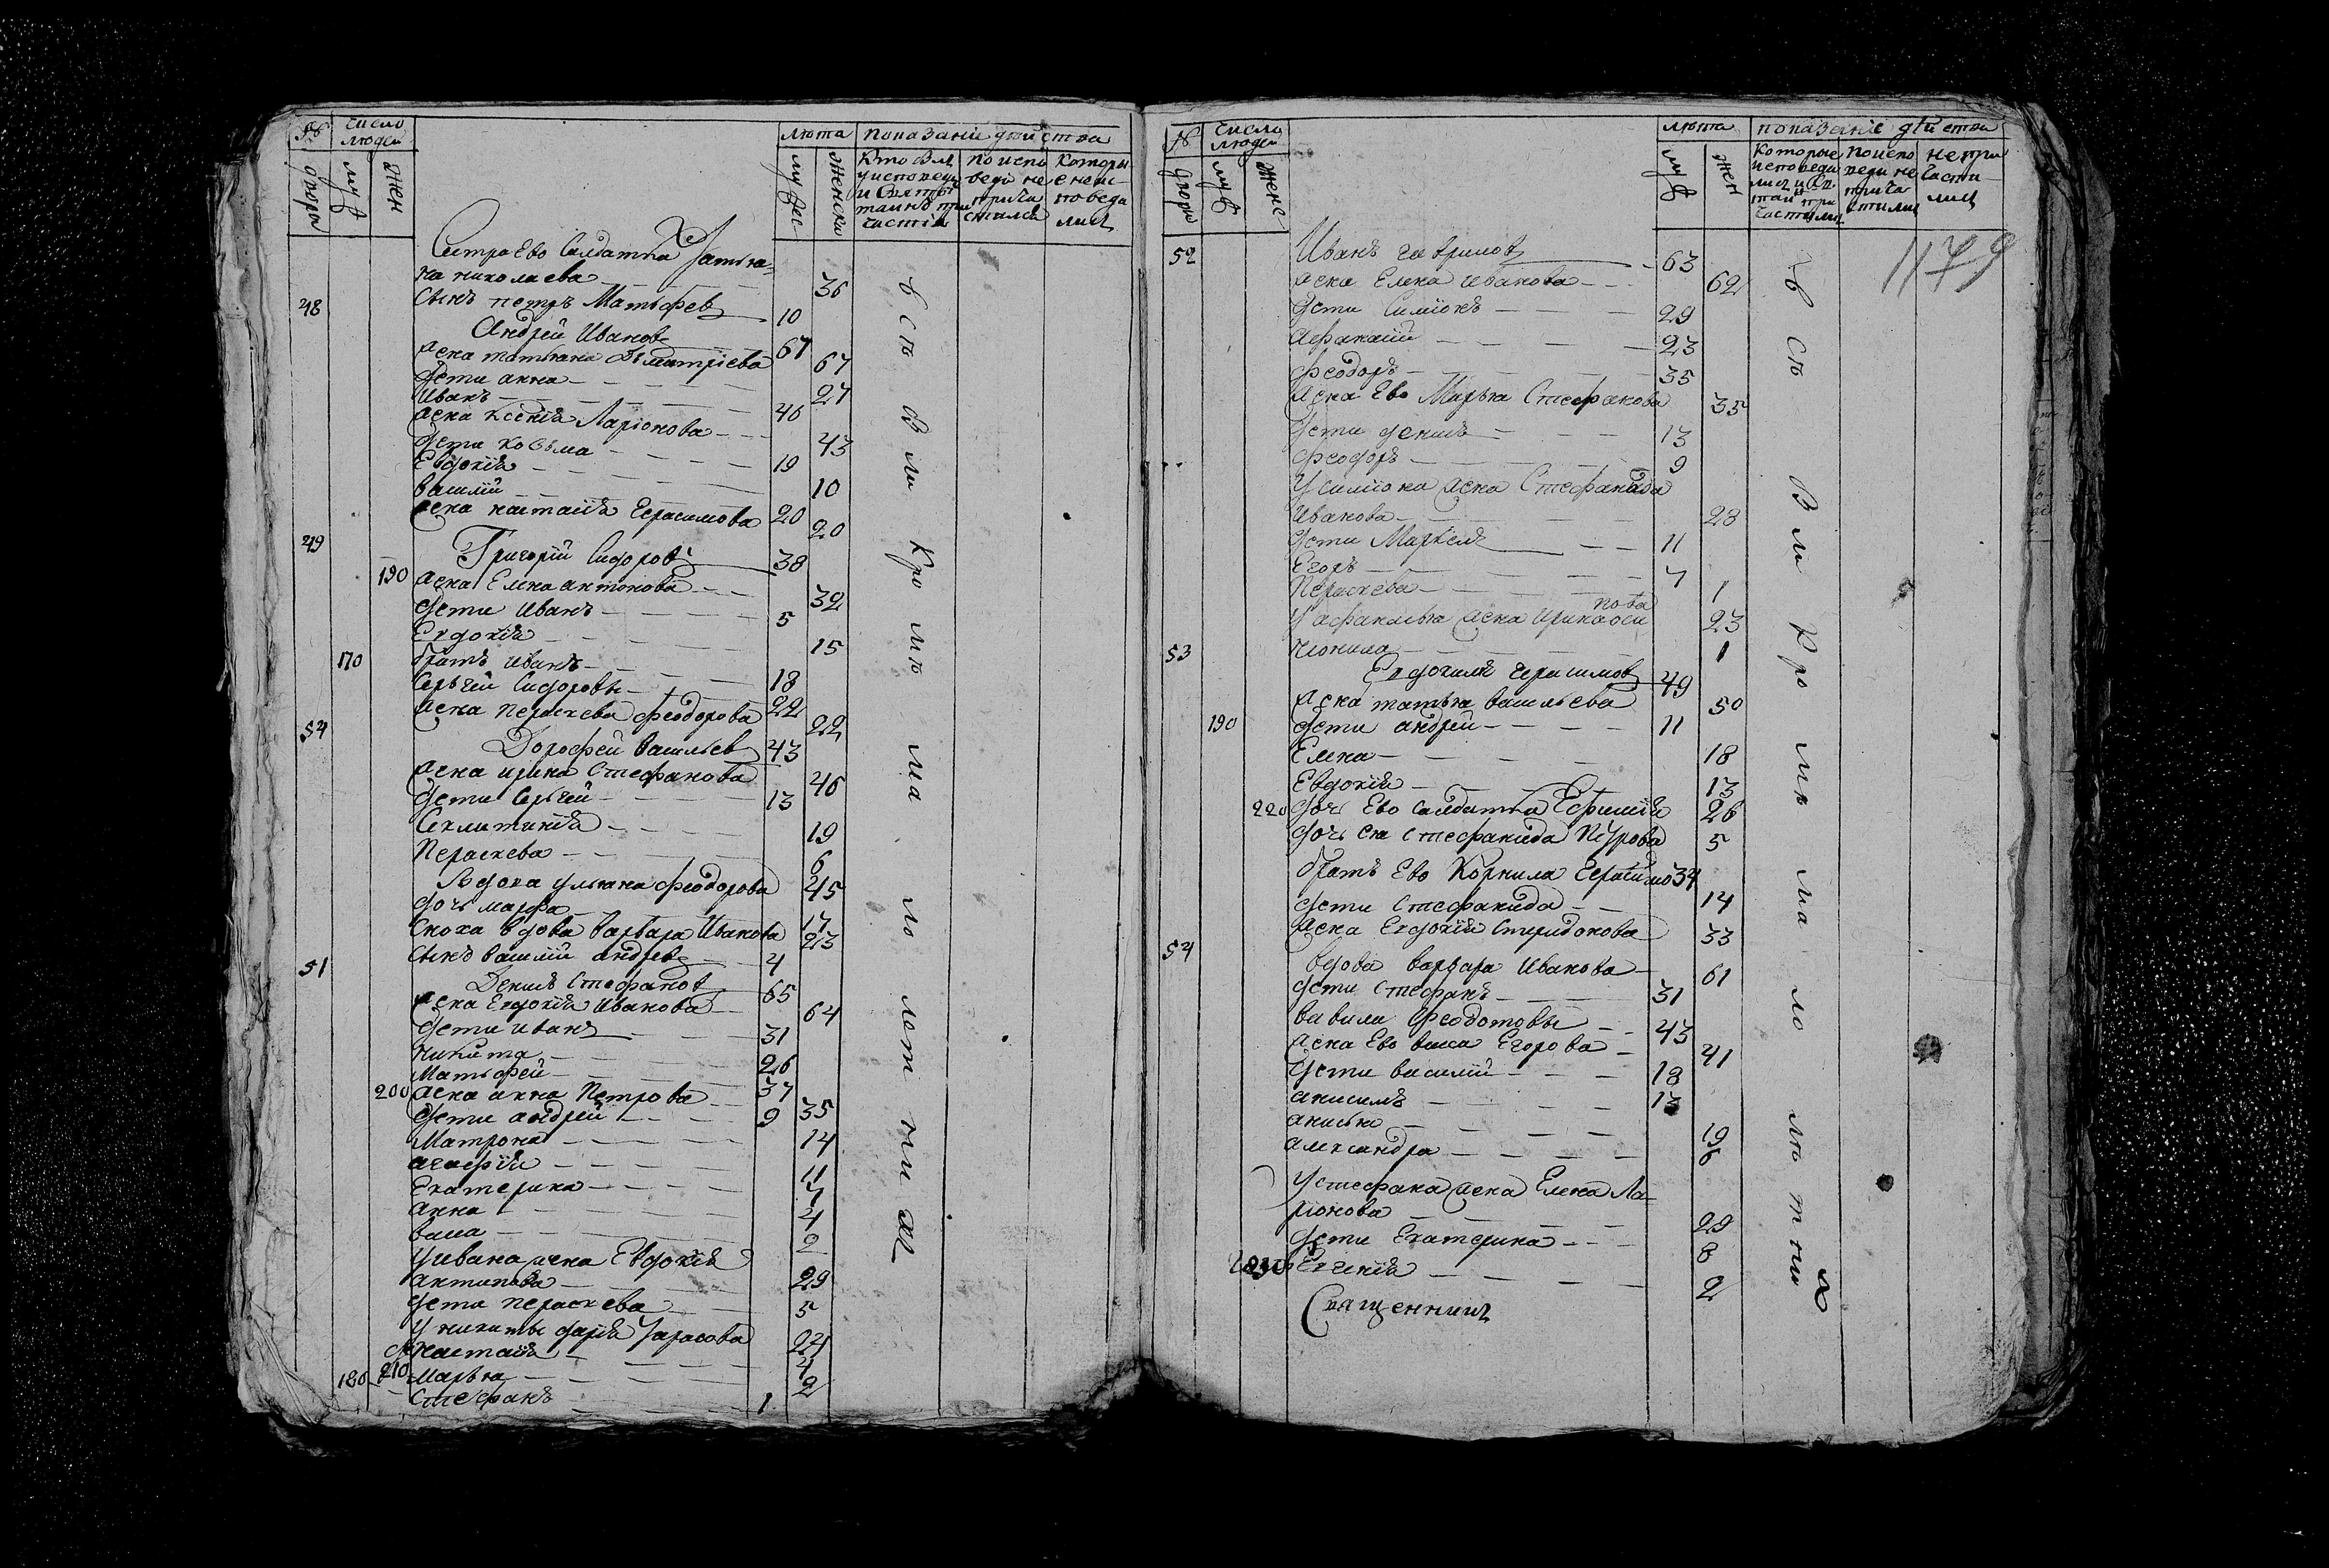 №
число
людей
люта
показание действа
дворо
муж
жен
муж
женски
Сестра Ево Салдатка Татия-
на николаева 36
48 сынъ петръ Матвфев 10
Андрей Иванов 67
жена татиана Димитріева 67
дети анна 27
Иванъ 46
жена Ксенія Ларіонова 43
дети козьма 19
Евдокія 10
василій 20
жена настасія Герасимова 20
49 Григорій Сидоровъ 38
190 жена Елена антонова 32
дети Иванъ 5
Евдокія 15
170 братъ иванъ 18
Сергей Сидоровы 22
жена перасковя феодорова 22
54 Дорофей васильев 43
жена ирина Стефанова 46
дети Сергей 13
Секлитикія 19
Пераскева 6
Вдова ульяна феодорова 45
дочь марфа 17
Сноха вдова варвара Иванова 23
сынъ василій андрев 4
51 Денисъ Стефанов 65
жена Евдокія Иванова 64
дети иванъ 31
никита 26
Матвфей 37
200 жена анна Петрова 35
дети андрей 9
Матрона 14
агафія 11
Екатерина 7
анна 4
васа 2
у ивана жена Евдокія
антипова 29
дети пераскева 5
у никиты дарія Тарасова 24
настасія 4
180 210 марья 2
Стефанъ 1
всъ Вм Кромъ ма ло лет них
№
число
людей
люта
показание действа
двори
муж
женс
муж
жен
Которые
исповеда
лись и св.
таин при
частились
по испо
веди не
прича
стились
не при
части
лись
1179
52 Иванъ гаврилов 63
жена Елена иванова 62
дети Симіонъ 29
афанасій 23
феодоръ 35
жена Ево Марья Стефанова 35
дети денисъ 13
феодоръ 9
у симіона жена Стефанида
Иванова 28
дети Маркелъ 11
Егоръ 7
Пераскева 1
у афанасья жена ирина оси
пова 23
53 неонила 1
Евдокимъ герасимов 49
жена татьяна васильева 50
190 дети андрей 11
Елена 18
Евдокія 13
220 дочь Ево салдатка Ефимія 26
дочь ея стефанида Петрова 5
братъ Ево Корнила Герасимо 34
дети стефанида 14
жена Евдокія Спиридонова 33
54 вдова варвара Иванова 61
дети стефанъ 31
вавила феодотовы 43
жена Ево васса Егорова 41
дети василій 18
анисимъ 13
анисья 19
александра 8
у стефана жена Елена Ла-
ріонова 29
дети Екатерина 8
230 Евгенія 2
Священникъ
всъ Вм Кромъ ма ло лют них